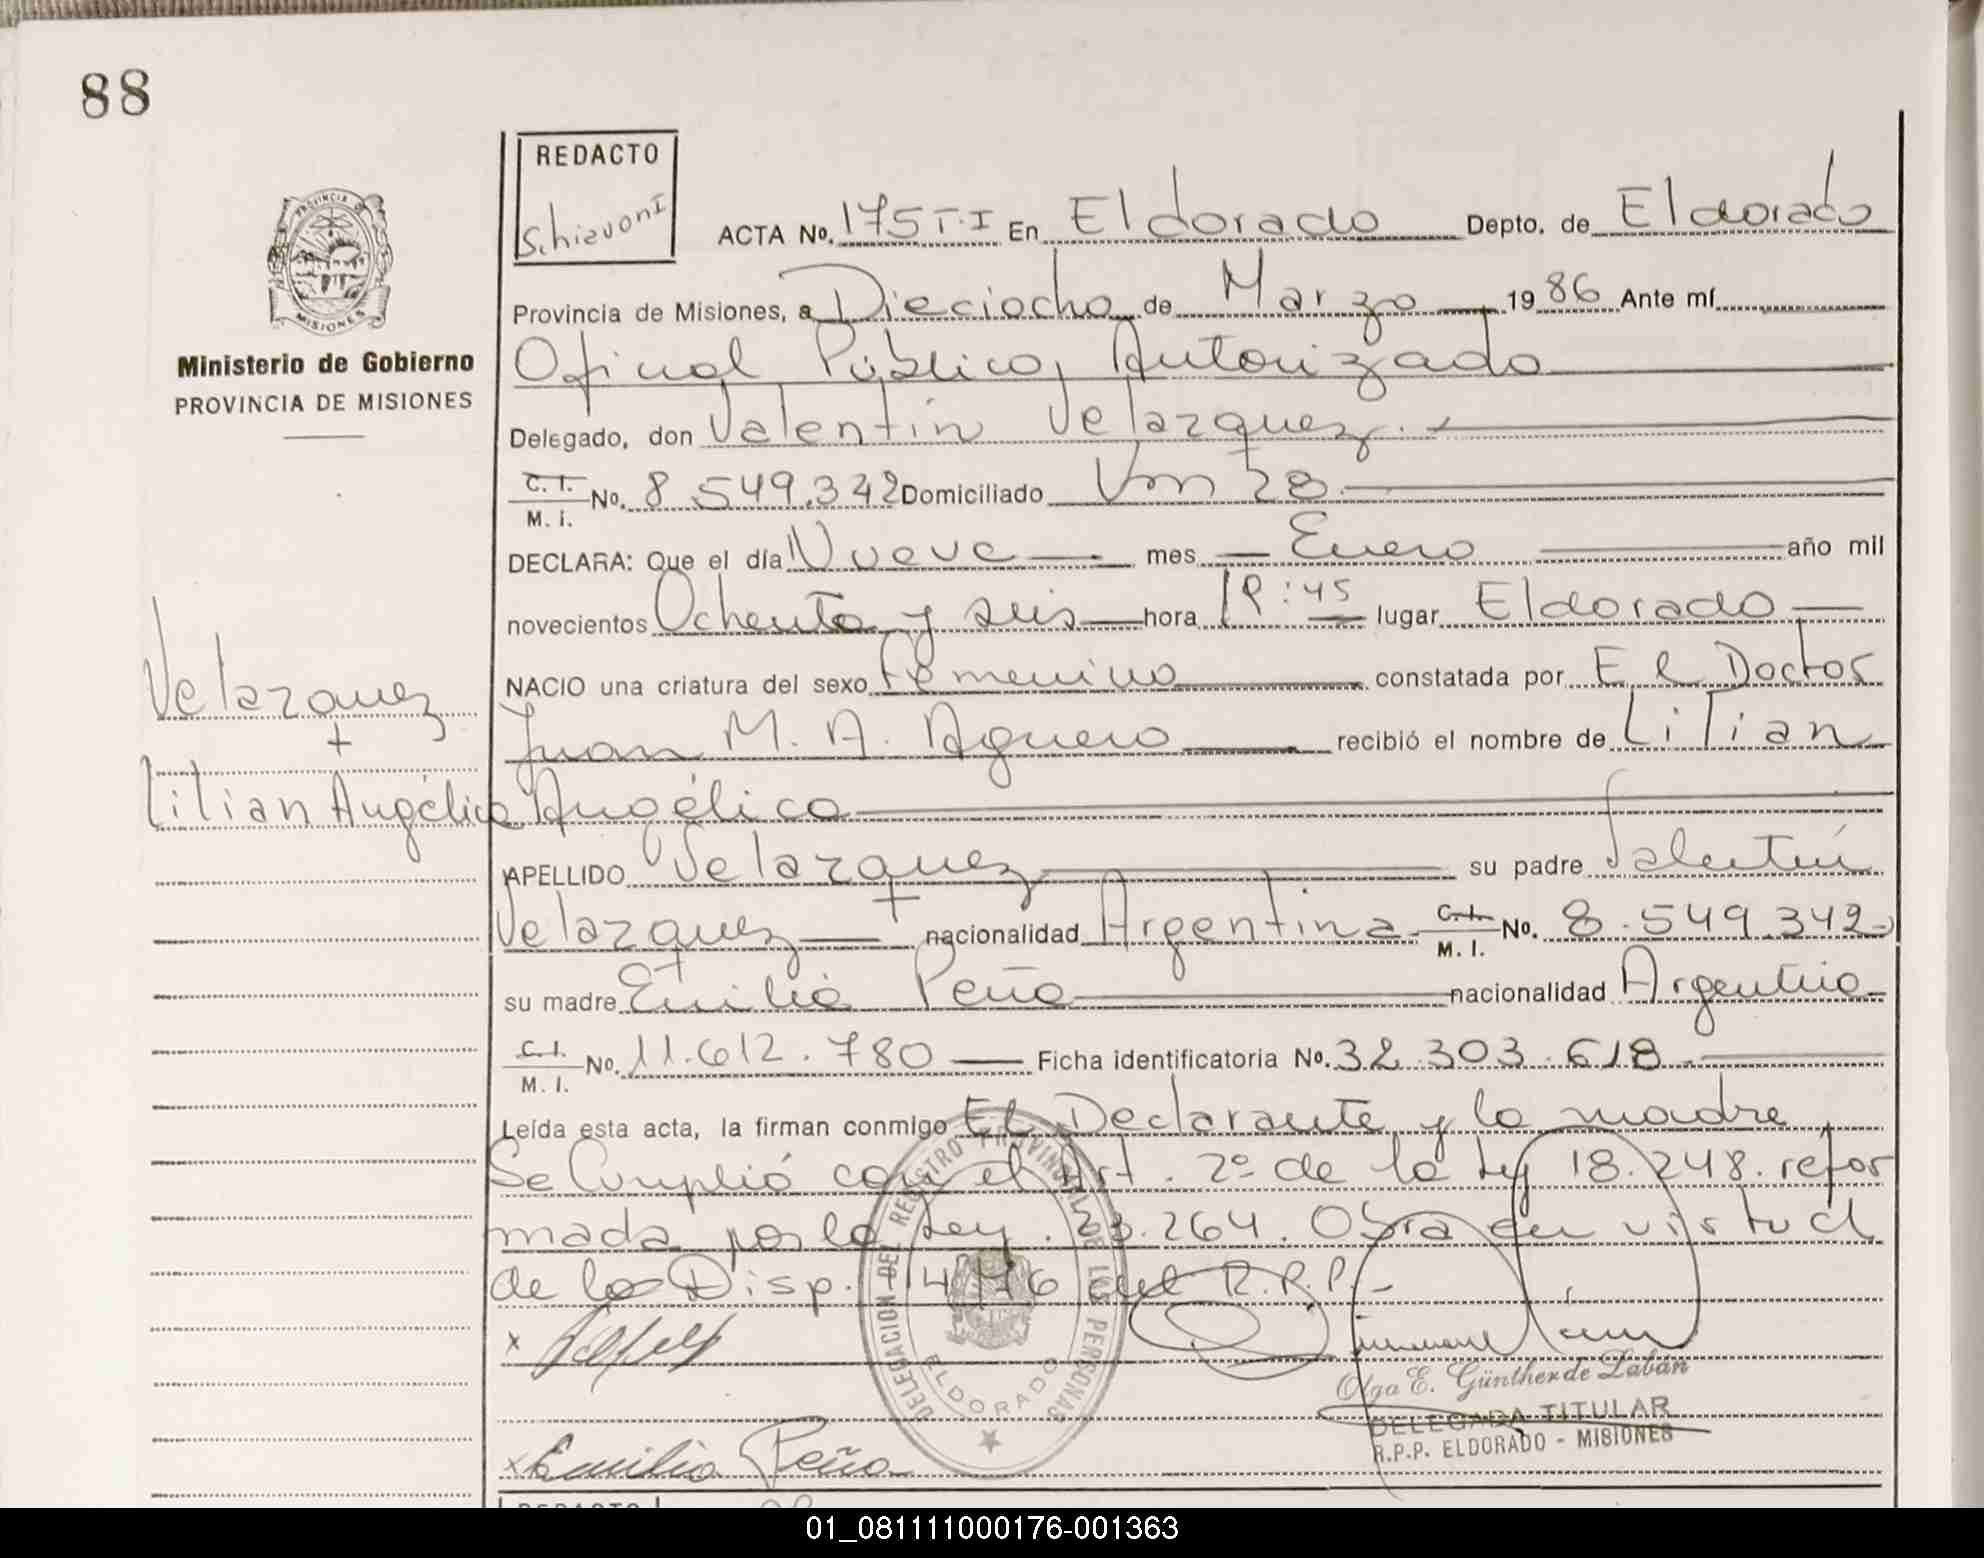 88
REDACTO
Schiavoni
PROVINCIA DE MISIONES
Ministerio de Gobierno
PROVINCIA DE MISIONES
ACTA No. 175 T.I En Eldorado Depto. de Eldorado
Provincia de Misiones, a Dieciocho de Marzo 19 86 Ante mí
Oficial Público, Autorizado
Delegado, don Valentin Velazquez.
C. I. / M. I. No. 8.549.342 Domiciliado Km 28
DECLARA: Que el día Nueve mes Enero año mil
novecientos Ochenta y seis hora 19:45 lugar Eldorado
NACIO una criatura del sexo femenino constatada por El Doctor
Juan M. A. Aguero recibió el nombre de Lilian
Angélica
Velazquez
+
Lilian Angélica
APELLIDO Velazquez su padre Valentin
Velazquez nacionalidad Argentina C. I. / M. I. No. 8.549.342
su madre Emilia Peña nacionalidad Argentina
C. I. / M. I. No. 11.612.780 Ficha identificatoria No. 32.303.618
Leída esta acta, la firman conmigo El Declarante y la madre
Se Cumplió con el Art. 2º de la Ley 18.248. refor
mada por la Ley. 23.264. Obra en virtud
de la Disp. 14/76 del R.R.P.-
DELEGACION DEL REGISTRO PROVINCIAL DE LAS PERSONAS
ELDORADO
x
Olga E. Günther de Labán
DELEGADA TITULAR
R.P.P. ELDORADO - MISIONES
x Emilia Peña
REDACTO
01_081111000176-001363